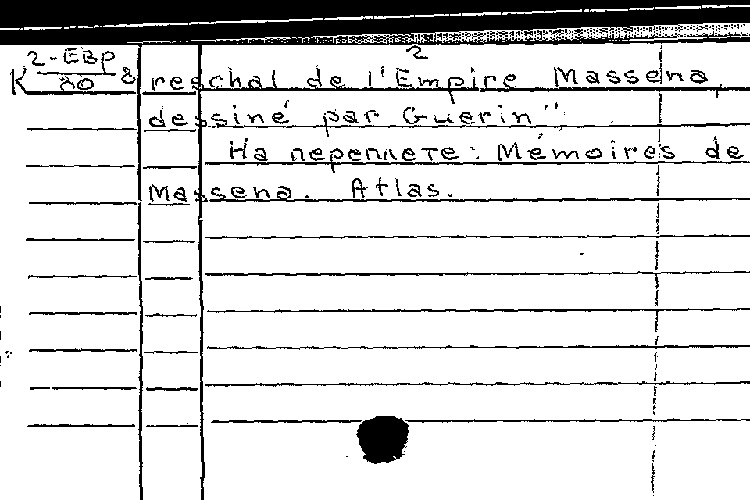 2
К 2-Евр/80 8
reschal de l'Empire Massena,
dessiné par Guerin";
На переплете: Mémoires de
Massena. Atlas.